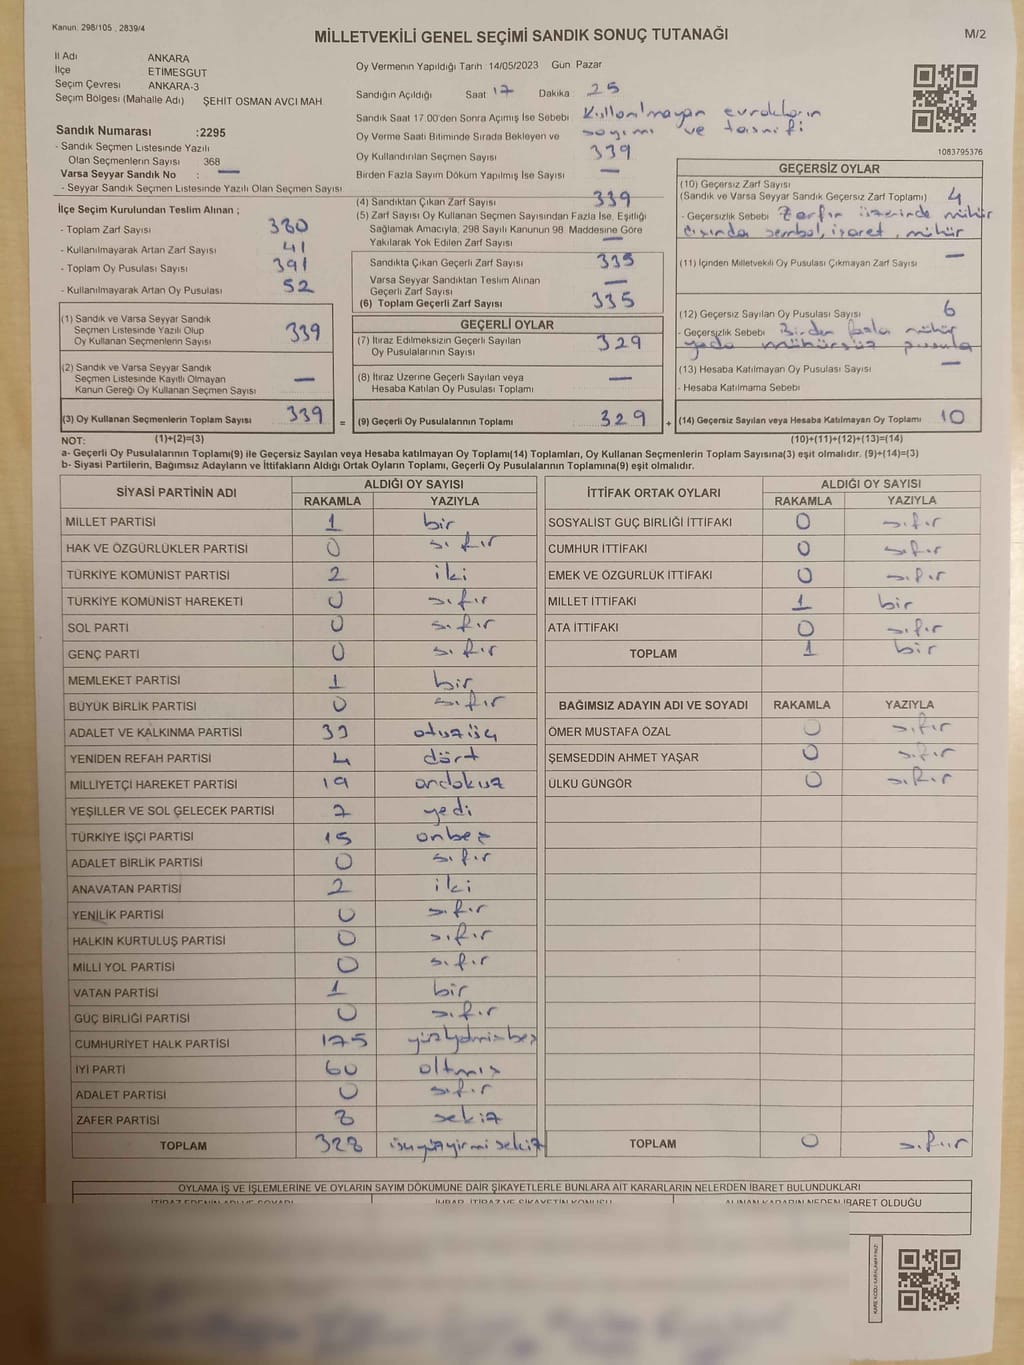 Kanun: 298/105 , 2839/4
MİLLETVEKİLİ GENEL SEÇİMİ SANDIK SONUÇ TUTANAĞI
M/2
İl Adı ANKARA
İlçe ETİMESGUT
Seçim Çevresi ANKARA-3
Seçim Bölgesi (Mahalle Adı) ŞEHİT OSMAN AVCI MAH.
Sandık Numarası :2295
- Sandık Seçmen Listesinde Yazılı
Olan Seçmenlerin Sayısı 368
Varsa Seyyar Sandık No : —
- Seyyar Sandık Seçmen Listesinde Yazılı Olan Seçmen Sayısı
Oy Vermenin Yapıldığı Tarih :14/05/2023 Gün: Pazar
Sandığın Açıldığı Saat : 17 Dakika : 25
Sandık Saat 17.00'den Sonra Açılmış İse Sebebi Kullanılmayan evrakların
Oy Verme Saati Bitiminde Sırada Bekleyen ve sayımı ve tasnifi
Oy Kullandırılan Seçmen Sayısı 339
Birden Fazla Sayım Döküm Yapılmış İse Sayısı —
1083795376
İlçe Seçim Kurulundan Teslim Alınan ;
- Toplam Zarf Sayısı 380
- Kullanılmayarak Artan Zarf Sayısı 41
- Toplam Oy Pusulası Sayısı 391
- Kullanılmayarak Artan Oy Pusulası 52
(1) Sandık ve Varsa Seyyar Sandık
Seçmen Listesinde Yazılı Olup
Oy Kullanan Seçmenlerin Sayısı 339
(2) Sandık ve Varsa Seyyar Sandık
Seçmen Listesinde Kayıtlı Olmayan
Kanun Gereği Oy Kullanan Seçmen Sayısı —
(3) Oy Kullanan Seçmenlerin Toplam Sayısı 339 =
(4) Sandıktan Çıkan Zarf Sayısı 339
(5) Zarf Sayısı Oy Kullanan Seçmen Sayısından Fazla İse, Eşitliği
Sağlamak Amacıyla, 298 Sayılı Kanunun 98. Maddesine Göre
Yakılarak Yok Edilen Zarf Sayısı —
Sandıkta Çıkan Geçerli Zarf Sayısı 335
Varsa Seyyar Sandıktan Teslim Alınan
Geçerli Zarf Sayısı —
(6) Toplam Geçerli Zarf Sayısı 335
GEÇERLİ OYLAR
(7) İtiraz Edilmeksizin Geçerli Sayılan
Oy Pusulalarının Sayısı 329
(8) İtiraz Üzerine Geçerli Sayılan veya
Hesaba Katılan Oy Pusulası Toplamı —
(9) Geçerli Oy Pusulalarının Toplamı 329 +
GEÇERSİZ OYLAR
(10) Geçersiz Zarf Sayısı
(Sandık ve Varsa Seyyar Sandık Geçersiz Zarf Toplamı) 4
- Geçersizlik Sebebi Zarfın üzerinde mühür
dışında sembol, işaret, mühür
(11) İçinden Milletvekili Oy Pusulası Çıkmayan Zarf Sayısı —
(12) Geçersiz Sayılan Oy Pusulası Sayısı 6
- Geçersizlik Sebebi Birden fazla mühür
yada mühürsüz pusula
(13) Hesaba Katılmayan Oy Pusulası Sayısı —
- Hesaba Katılmama Sebebi
(14) Geçersiz Sayılan veya Hesaba Katılmayan Oy Toplamı 10
NOT: (1)+(2)=(3) (10)+(11)+(12)+(13)=(14)
a- Geçerli Oy Pusulalarının Toplamı(9) ile Geçersiz Sayılan veya Hesaba katılmayan Oy Toplamı(14) Toplamları, Oy Kullanan Seçmenlerin Toplam Sayısına(3) eşit olmalıdır. (9)+(14)=(3)
b- Siyasi Partilerin, Bağımsız Adayların ve İttifakların Aldığı Ortak Oyların Toplamı, Geçerli Oy Pusulalarının Toplamına(9) eşit olmalıdır.
SİYASİ PARTİNİN ADI ALDIĞI OY SAYISI
RAKAMLA YAZIYLA
MİLLET PARTİSİ 1 bir
HAK VE ÖZGÜRLÜKLER PARTİSİ 0 sıfır
TÜRKİYE KOMÜNİST PARTİSİ 2 iki
TÜRKİYE KOMÜNİST HAREKETİ 0 sıfır
SOL PARTİ 0 sıfır
GENÇ PARTİ 0 sıfır
MEMLEKET PARTİSİ 1 bir
BÜYÜK BİRLİK PARTİSİ 0 sıfır
ADALET VE KALKINMA PARTİSİ 33 otuzüç
YENİDEN REFAH PARTİSİ 4 dört
MİLLİYETÇİ HAREKET PARTİSİ 19 ondokuz
YEŞİLLER VE SOL GELECEK PARTİSİ 7 yedi
TÜRKİYE İŞÇİ PARTİSİ 15 onbeş
ADALET BİRLİK PARTİSİ 0 sıfır
ANAVATAN PARTİSİ 2 iki
YENİLİK PARTİSİ 0 sıfır
HALKIN KURTULUŞ PARTİSİ 0 sıfır
MİLLİ YOL PARTİSİ 0 sıfır
VATAN PARTİSİ 1 bir
GÜÇ BİRLİĞİ PARTİSİ 0 sıfır
CUMHURİYET HALK PARTİSİ 175 yüzyetmişbeş
İYİ PARTİ 60 altmış
ADALET PARTİSİ 0 sıfır
ZAFER PARTİSİ 8 sekiz
TOPLAM 328 üçyüzyirmisekiz
İTTİFAK ORTAK OYLARI ALDIĞI OY SAYISI
RAKAMLA YAZIYLA
SOSYALİST GÜÇ BİRLİĞİ İTTİFAKI 0 sıfır
CUMHUR İTTİFAKI 0 sıfır
EMEK VE ÖZGÜRLÜK İTTİFAKI 0 sıfır
MİLLET İTTİFAKI 1 bir
ATA İTTİFAKI 0 sıfır
TOPLAM 1 bir
BAĞIMSIZ ADAYIN ADI VE SOYADI RAKAMLA YAZIYLA
ÖMER MUSTAFA ÖZAL 0 sıfır
ŞEMSEDDİN AHMET YAŞAR 0 sıfır
ÜLKÜ GÜNGÖR 0 sıfır
TOPLAM 0 sıfır
OYLAMA İŞ VE İŞLEMLERİNE VE OYLARIN SAYIM DÖKÜMÜNE DAİR ŞİKAYETLERLE BUNLARA AİT KARARLARIN NELERDEN İBARET BULUNDUKLARI
İTİRAZ EDENİN ADI VE SOYADI İHBAR, İTİRAZ VE ŞİKAYETİN KONUSU ALINAN KARARIN NEDEN İBARET OLDUĞU